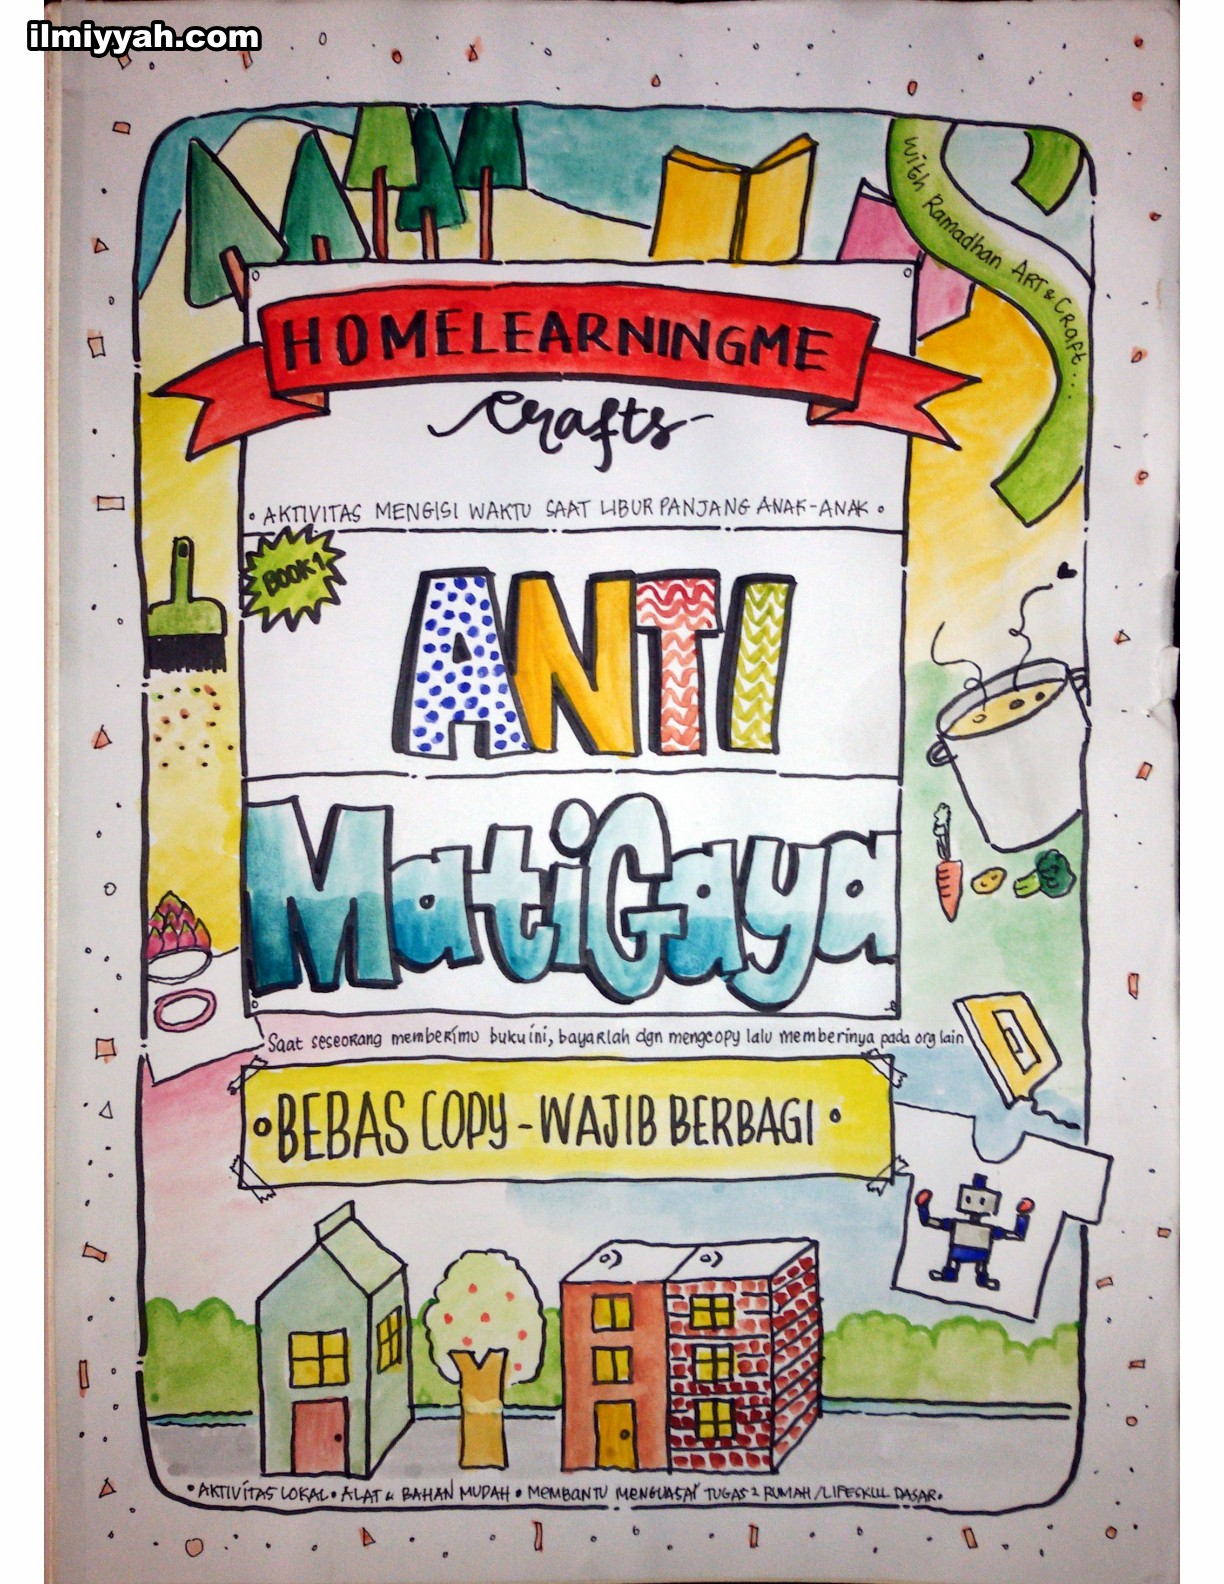 ilmiyyah.com
with Ramadhan ART & CRaft...
HOMELEARNINGME
crafts
• AKTIVITAS MENGISI WAKTU SAAT LIBUR PANJANG ANAK-ANAK •
BOOK 1
ANTI
MatiGaya
Saat seseorang memberimu buku ini, bayarlah dgn mengcopy lalu memberinya pada org lain
• BEBAS COPY - WAJIB BERBAGI •
• AKTIVITAS LOKAL • ALAT & BAHAN MUDAH • MEMBANTU MENGUASAI TUGAS2 RUMAH/LIFESKILL DASAR.